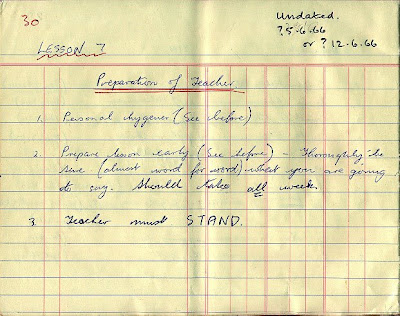 30
Undated.
? 5.6.66
or ? 12.6.66
LESSON 7
Preparation of Teacher
1. Personal hygener (See before)
2. Prepare lesson early (See before) - Thoroughly be
sure (almost word for word) what you are going
to say. Should take all week.
3. Teacher must STAND.